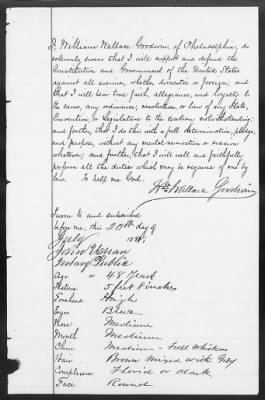 I, William Wallace Goodwin, of Philadelphia, do
solemnly swear that I will support and defend the
Constitution and Government of the United States
against all enemies, whether domestic or foreign; and
that I will bear true faith, allegiance, and loyalty to
the same, any ordinance, resolution, or law of any State,
Convention, or Legislature to the contrary notwithstanding;
and further, that I do this with a full determination, pledge,
and purpose, without any mental reservation or evasion
whatsoever; and further, that I will well and faithfully
perform all the duties which may be required of me by
law. So help me God.
Wm Wallace Goodwin
Sworn to and subscribed
before me, this 29th day of
July
Notary Public
Age = 48 Years
Stature 5 feet 8 inches
Forehead High
Eyes Blue
Nose Medium
Mouth Medium
Chin Medium - Full Whiskers
Hair Brown mixed with Grey
Complexion Florid or dark
Face Round